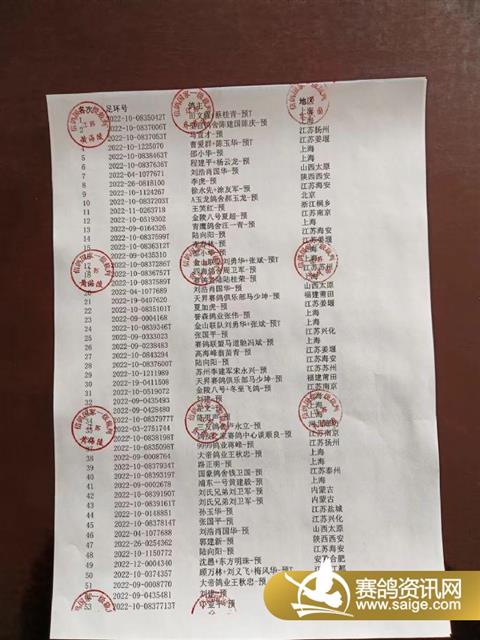 名次 足环号 鸽主 地区
2022-10-0835042T 上海
2022-10-0837006T 上海
2022-10-0837053T 江苏扬州
2022-10-1225070 曹爱群+陈玉华-预T 江苏姜堰
5 2022-10-0838463T 邵小华-预 上海
6 2022-10-0837636T 程建平+杨云龙-预 上海
7 2022-04-1077671 刘浩肖国华-预 山西太原
8 2022-26-0818100 李虎-预 陕西西安
9 2022-10-1124267 徐永先+涂友军-预 江苏海安
10 2022-10-0837203T A玉龙鸽舍郝玉龙-预 北京
11 2022-11-0263718 王笑红-预 浙江桐乡
12 2022-10-0519302 金陵八号夏超-预 江苏南京
13 2022-09-0164326 青鹰鸽舍汪一青-预 上海
14 2022-10-0837599T 陆向阳-预 江苏海安
15 2022-10-0836312T 江苏姜堰
2022-09-0435310 邵小华-预 上海
2022-10-0837286T 金山联队刘勇华+张斌-预T
2022-10-0836757T 四海鸽舍周卫军-预
2022-10-0837589T 陆桂荣-预
20 2022-04-1077687 刘浩肖国华-预 山西太原
21 2022-19-0407620 天昇赛鸽俱乐部马少坤-预 福建莆田
22 2022-10-0835101T 夏加虎-预 江苏姜堰
23 2022-09-0004168 誉森鸽业张伟-预 上海
24 2022-10-0839346T 金山联队刘勇华+张斌-预T 上海
25 2022-09-0333023 张国平-预 江苏兴化
26 2022-09-0238823 赛鸽联盟马道驰冯斌-预 上海
27 2022-10-0843294 高海峰翁苗青-预 江苏姜堰
28 2022-10-0837600T 陆向阳-预 江苏海安
29 2022-10-1211989 苏州李建军宋永兴-预 江苏姜堰
30 2022-19-0411508 天昇赛鸽俱乐部马少坤-预 福建莆田
31 2022-10-0519072 金陵八号+冬至飞鸽-预 江苏南京
32 2022-09-0435493 刘建-预 上海
2022-09-0428480 上海
2022-10-0837977T 上海
2022-03-2751744 三友鸽舍卢永立-预
2022-10-0838198T 赛鸽中心谈顺良-预 江苏南京
2022-10-0835098T 9999鸽业蒋峰-预 江苏扬州
38 2022-09-0008764 大帝鸽业王秋忠-预 上海
39 2022-10-0837934T 路正明-预 上海
40 2022-10-0839319T 国豪鸽舍钱卫国-预 江苏泰州
41 2022-09-0002678 浦东一号黄建毅-预 上海
42 2022-10-0839190T 刘氏兄弟刘卫军-预 内蒙古
43 2022-10-0839161T 刘氏兄弟刘卫军-预 内蒙古
44 2022-10-0148851 孙玉华-预 江苏盐城
45 2022-10-0837814T 张国平-预 江苏兴化
46 2022-04-1077688 刘浩肖国华-预 山西太原
47 2022-26-0254362 郭建新-预 陕西西安
48 2022-10-1150772 陆向阳-预 江苏海安
49 2022-12-0004340 沈愚+东方明珠-预 安徽合肥
50 2022-10-0074357 顾万林+刘义飞+梅凤华-预T
51 2022-09-0008770 大帝鸽业王秋忠-预
2022-09-0435481 刘建-预
53 2022-10-0837713T
赛鸽资讯网
www.saige.com